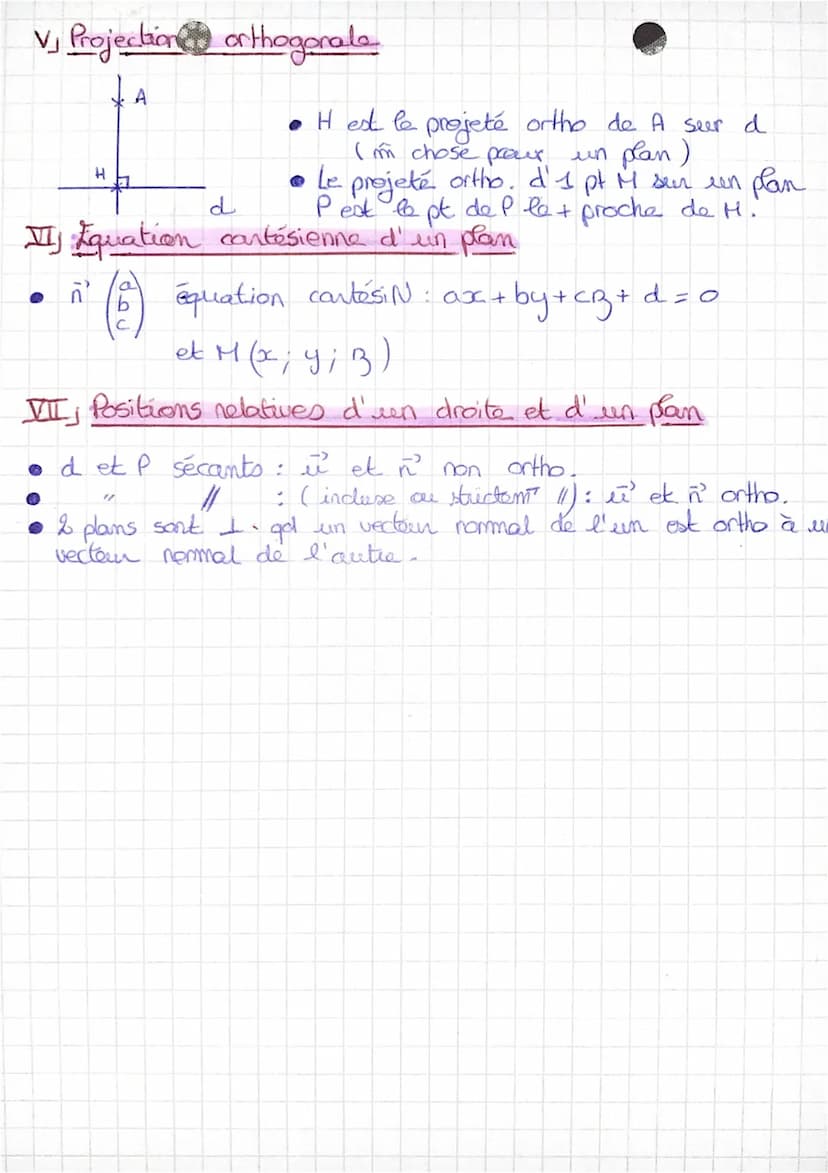 V) Projection orthogonale
A
• H est le projeté ortho de A sur d
(m̂ chose pour un plan)
H
• Le projeté ortho. d'1 pt M sur un plan
d
P est le pt de P le + proche de M.
VI) Equation cartésienne d'un plan
• n⃗ (a b c) équation cartésiN : ax + by + cz + d = 0
et M (x ; y ; z)
VII) Positions relatives d'un droite et d'un plan
• d et P sécants : u⃗ et n⃗ non ortho.
• " // : (incluse ou strictemT //) : u⃗ et n⃗ ortho.
• 2 plans sont ⊥. qd un vecteur normal de l'un est ortho à un
vecteur normal de l'autre.